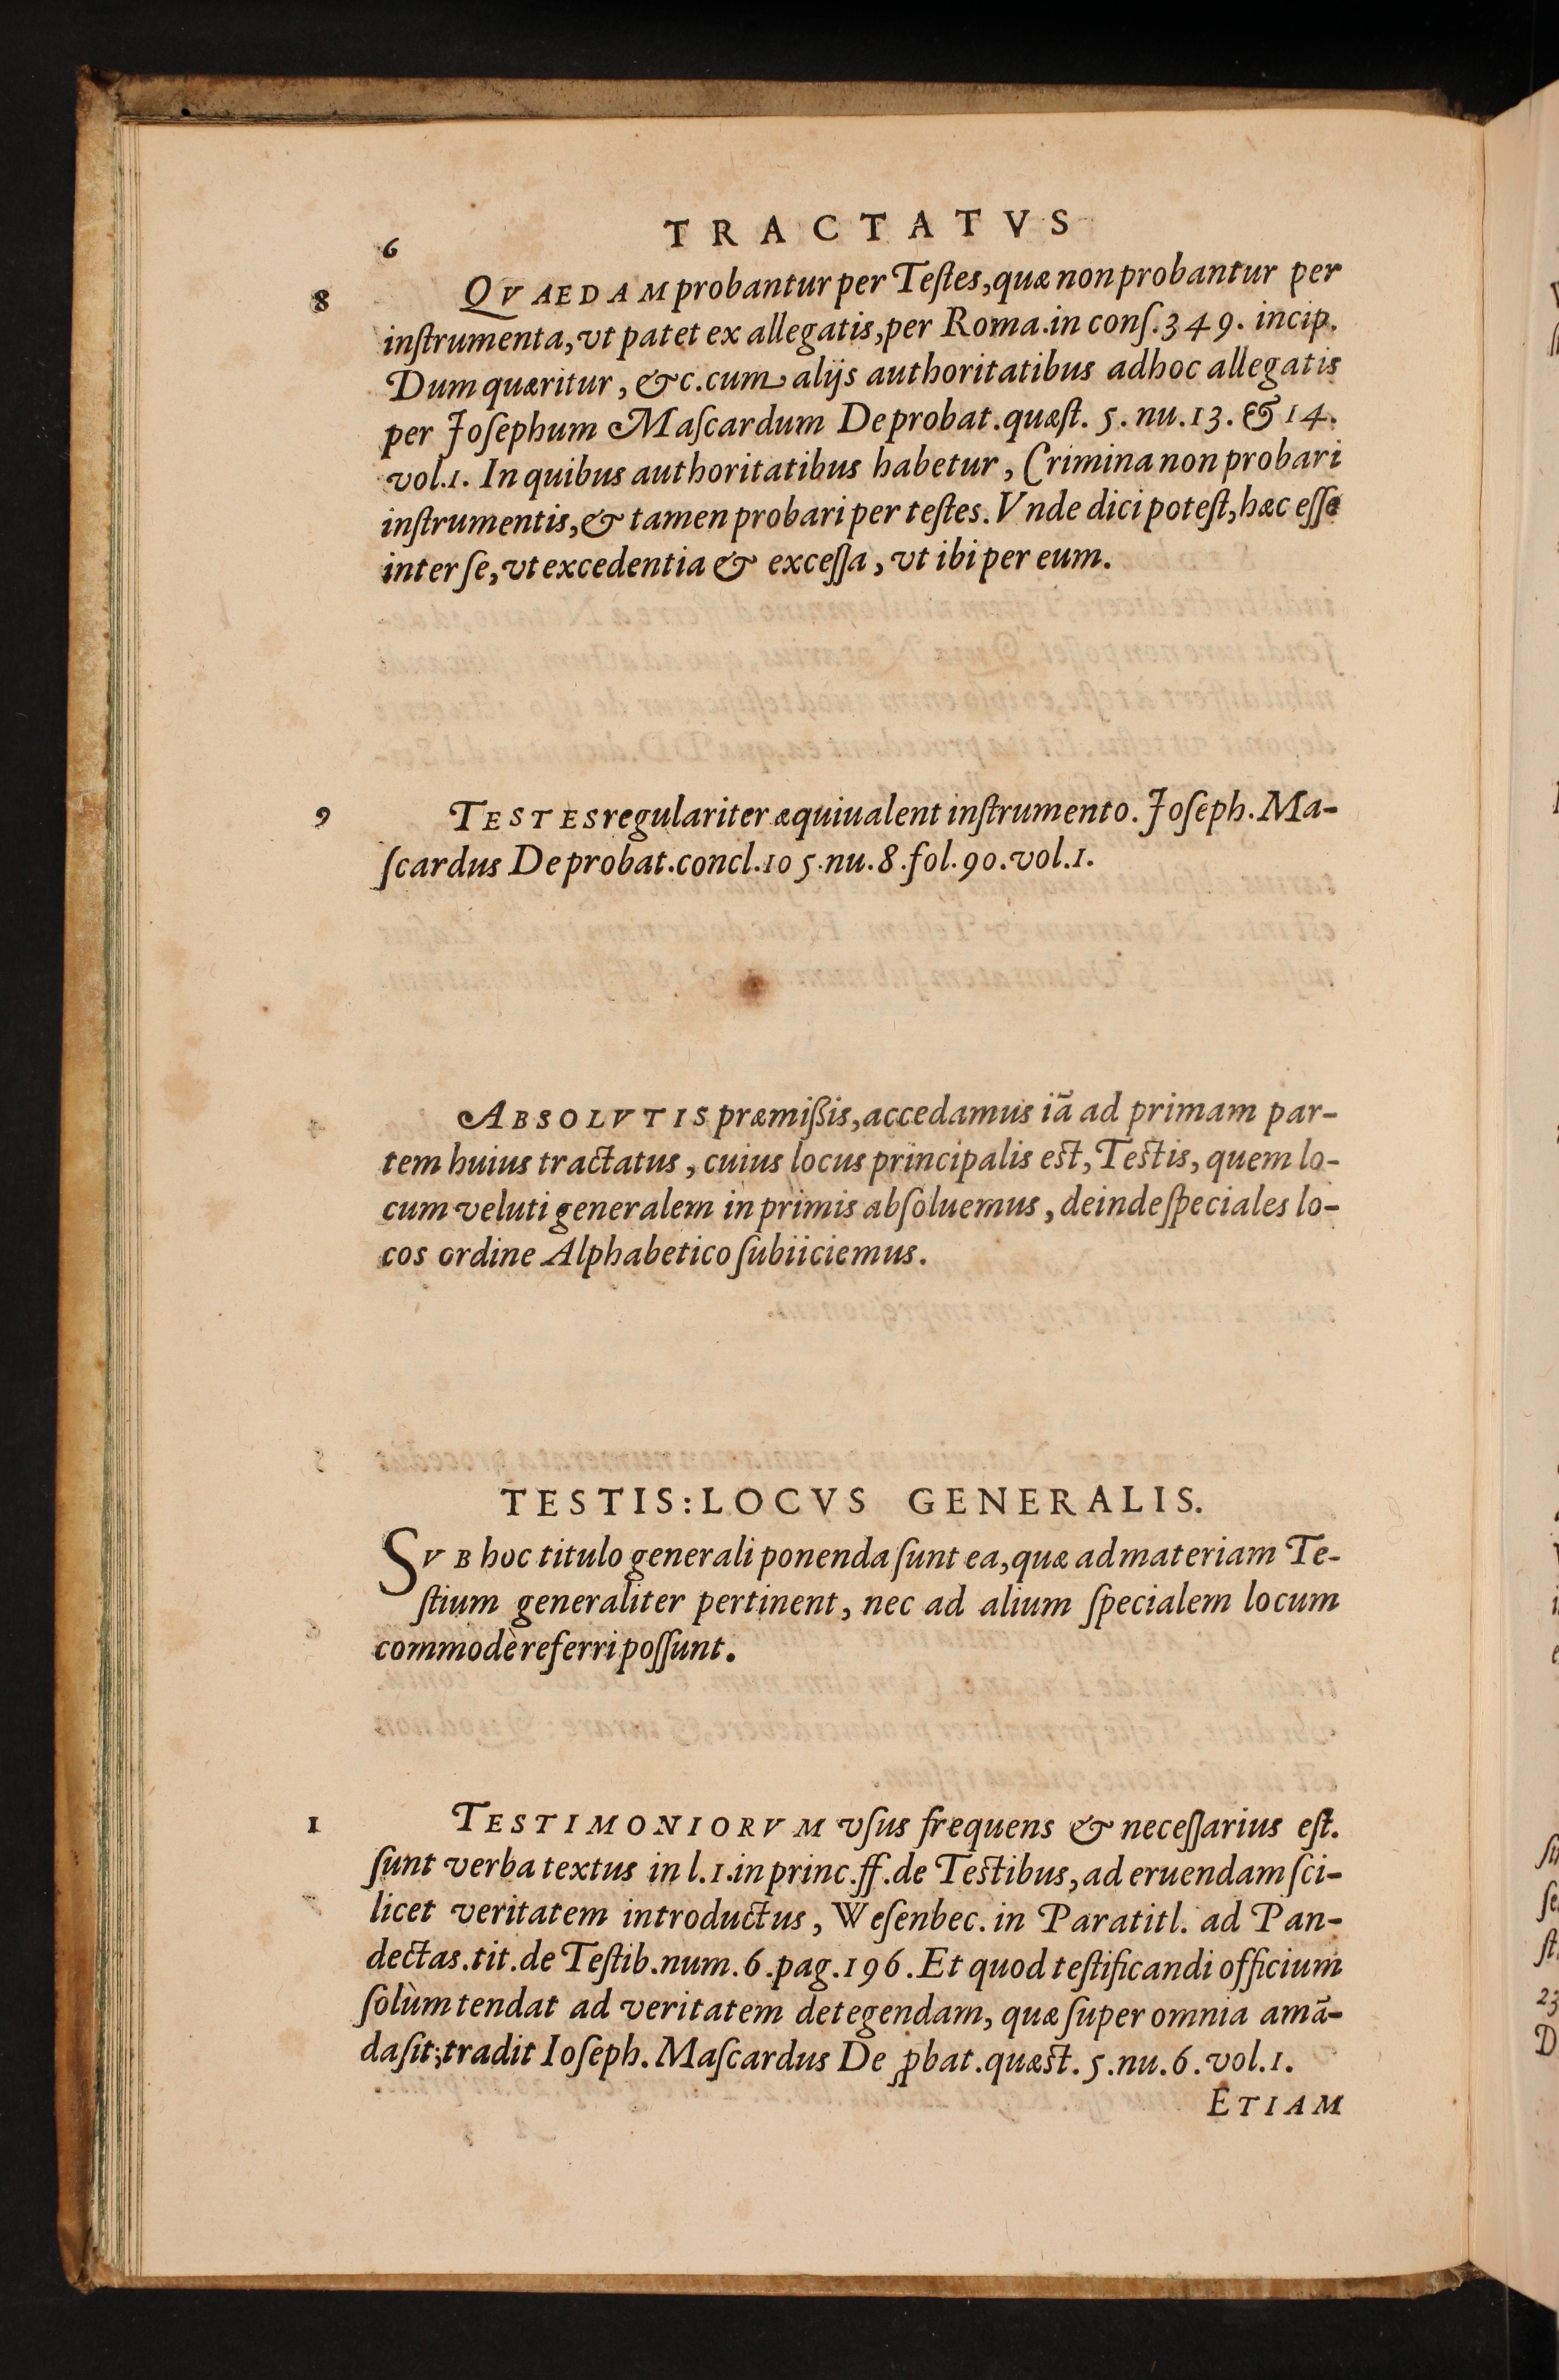 6 TRACTATVS
8 QVAEDAM probantur per Teſtes, quæ non probantur per
inſtrumenta, vt patet ex allegatis, per Roma. in conſ. 349. incip.
Dum quæritur, &c. cum alijs authoritatibus ad hoc allegatis
per Joſephum Maſcardum De probat. quæſt. 5. nu. 13. & 14.
vol. 1. In quibus authoritatibus habetur, Crimina non probari
inſtrumentis, & tamen probari per teſtes. Vnde dici poteſt, hæc eſſe
inter ſe, vt excedentia & exceſſa, vt ibi per eum.
9 TESTES regulariter æquiualent inſtrumento. Joſeph. Ma-
ſcardus De probat. concl. 105. nu. 8. fol. 90. vol. 1.
ABSOLVTIS præmißis, accedamus iā ad primam par-
tem huius tractatus, cuius locus principalis eſt, Teſtis, quem lo-
cum veluti generalem in primis abſoluemus, deinde ſpeciales lo-
cos ordine Alphabetico ſubiiciemus.
TESTIS: LOCVS GENERALIS.
SVB hoc titulo generali ponenda ſunt ea, quæ ad materiam Te-
ſtium generaliter pertinent, nec ad alium ſpecialem locum
commodè referri poſſunt.
1 TESTIMONIORVM vſus frequens & neceſſarius eſt.
ſunt verba textus in l. 1. in princ. ff. de Teſtibus, ad eruendam ſci-
licet veritatem introductus, Weſenbec. in Paratitl. ad Pan-
dectas. tit. de Teſtib. num. 6. pag. 196. Et quod teſtificandi officium
ſolùm tendat ad veritatem detegendam, quæ ſuper omnia amā-
da ſit; tradit Ioſeph. Maſcardus De ꝓbat. quæſt. 5. nu. 6. vol. 1.
ETIAM